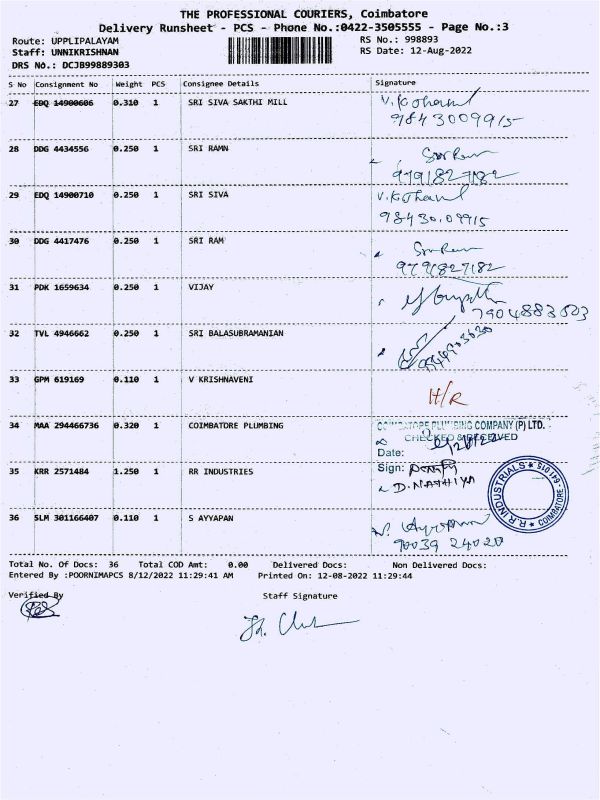 THE PROFESSIONAL COURIERS, Coimbatore
Delivery Runsheet - PCS - Phone No.:0422-3505555 - Page No.:3
Route: UPPLIPALAYAM RS No.: 998893
Staff: UNNIKRISHNAN RS Date: 12-Aug-2022
DRS No.: DCJB99889303
S No Consignment No Weight PCS Consignee Details Signature
27 EDQ 14900606 0.310 1 SRI SIVA SAKTHI MILL
9843009915
28 DDG 4434556 0.250 1 SRI RAMN
9791827182
29 EDQ 14900710 0.250 1 SRI SIVA
98430.09915
30 DDG 4417476 0.250 1 SRI RAM
9791827182
31 PDK 1659634 0.250 1 VIJAY
7904883503
32 TVL 4946662 0.250 1 SRI BALASUBRAMANIAN
33 GPM 619169 0.110 1 V KRISHNAVENI H/R
34 MAA 294466736 0.320 1 COIMBATORE PLUMBING COIMBATORE PLUMBING COMPANY (P) LTD.
CHECKED & RECEIVED
Date:
35 KRR 2571484 1.250 1 RR INDUSTRIES Sign:
D. NATHIYA
R.R INDUSTRIES ★ COIMBATORE - 641 015 ★
36 SLM 301166407 0.110 1 S AYYAPAN
90039 24020
Total No. Of Docs: 36 Total COD Amt: 0.00 Delivered Docs: Non Delivered Docs:
Entered By :POORNIMAPCS 8/12/2022 11:29:41 AM Printed On: 12-08-2022 11:29:44
Verified By Staff Signature